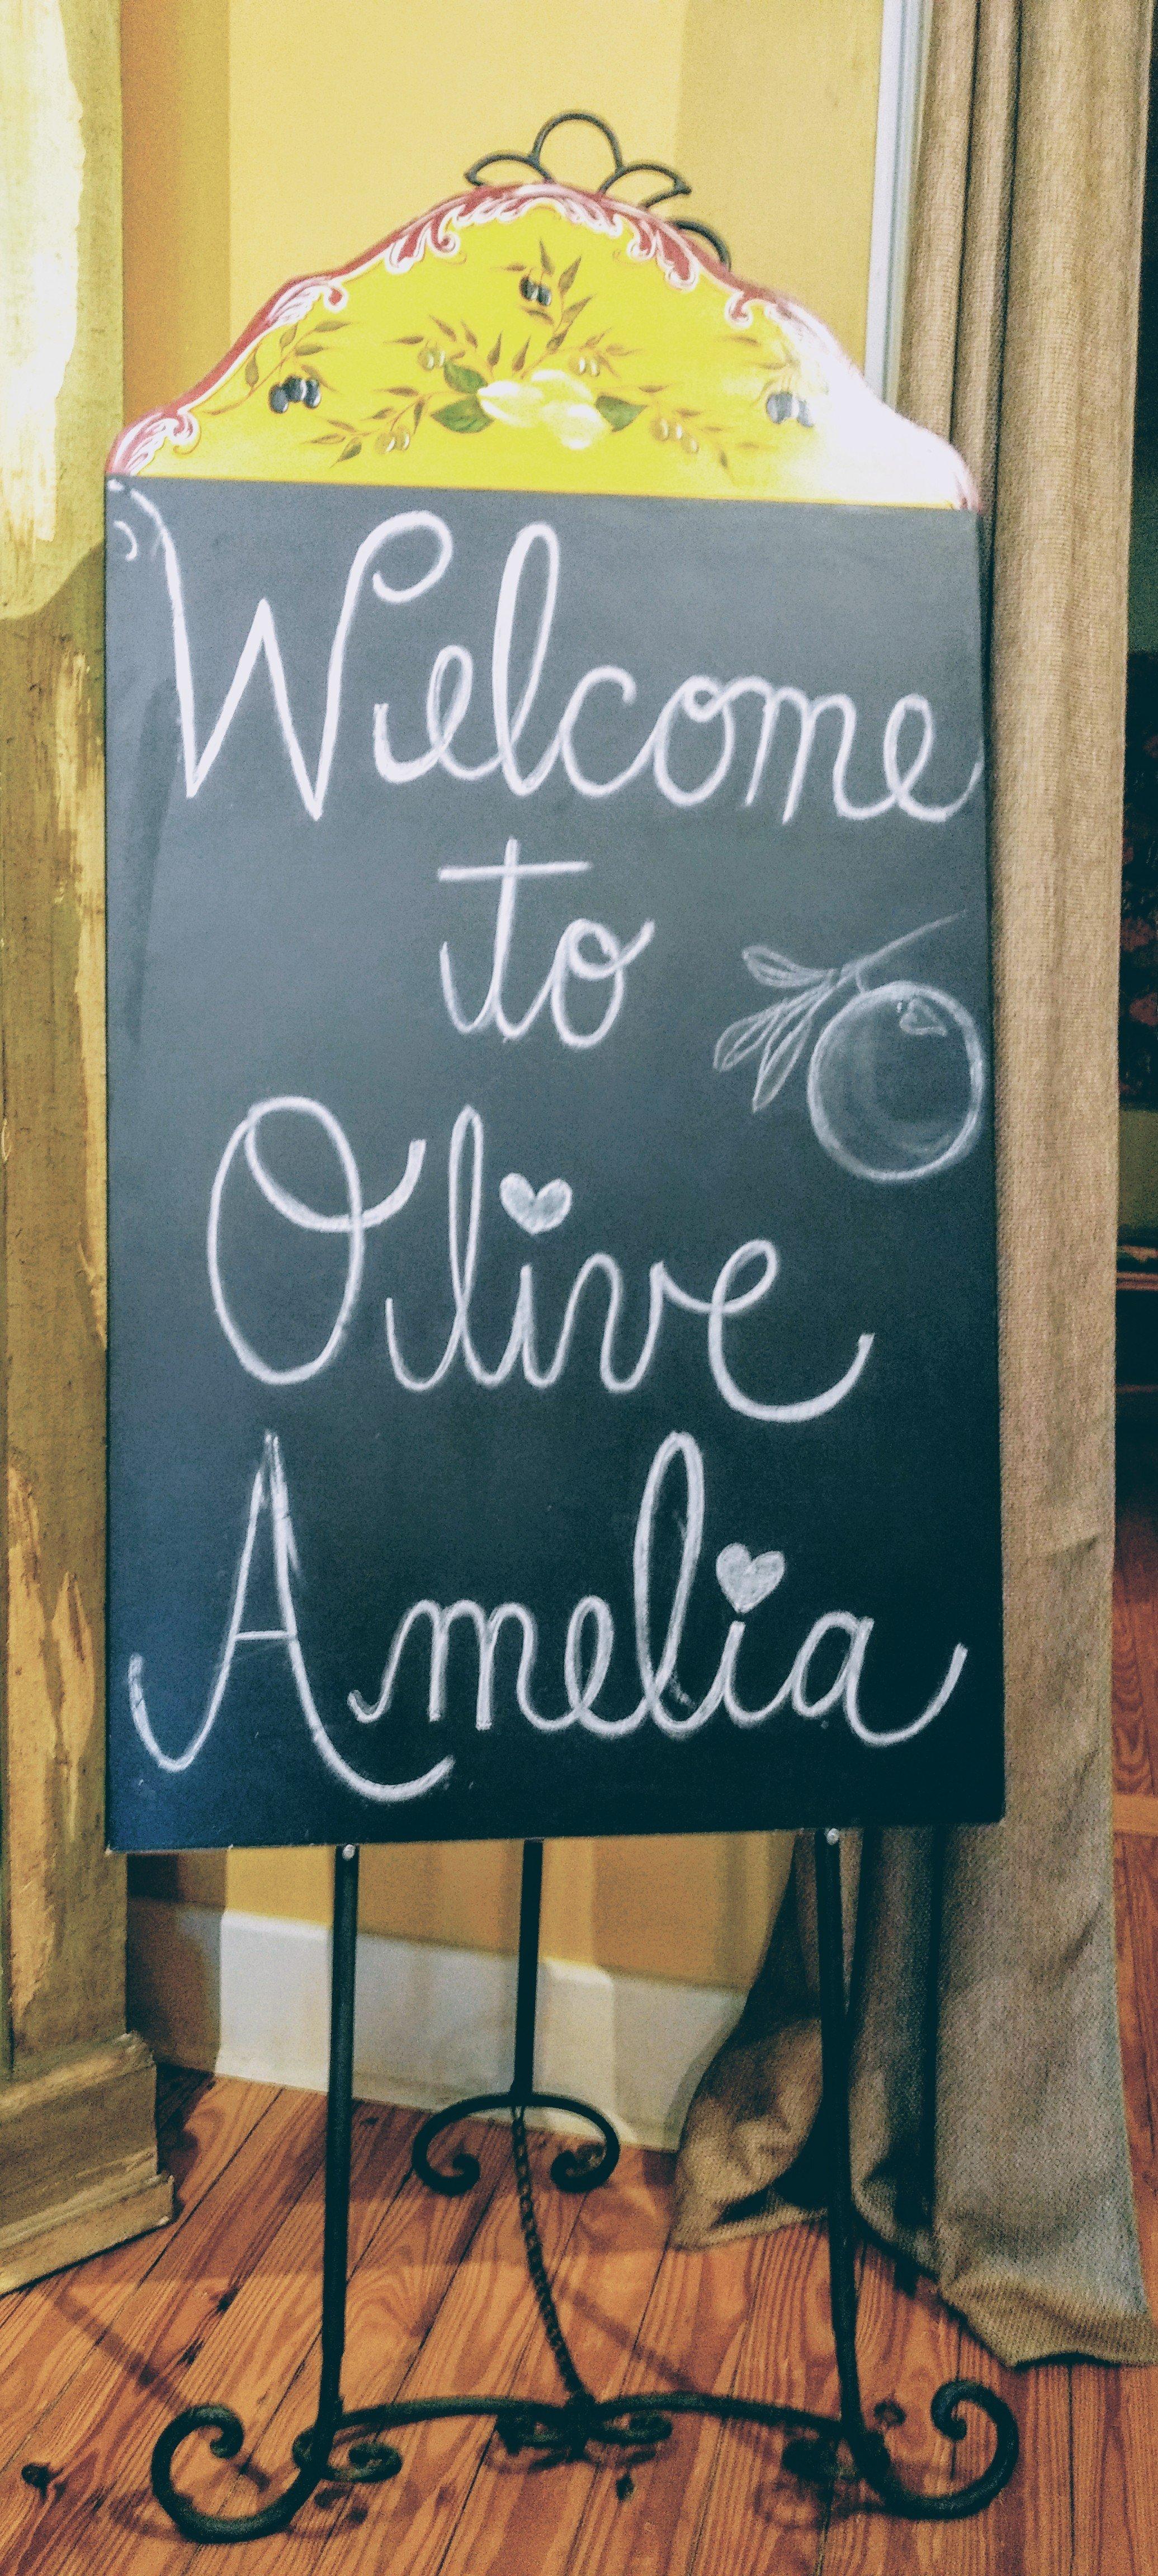 Welcome
to
Olive
Amelia